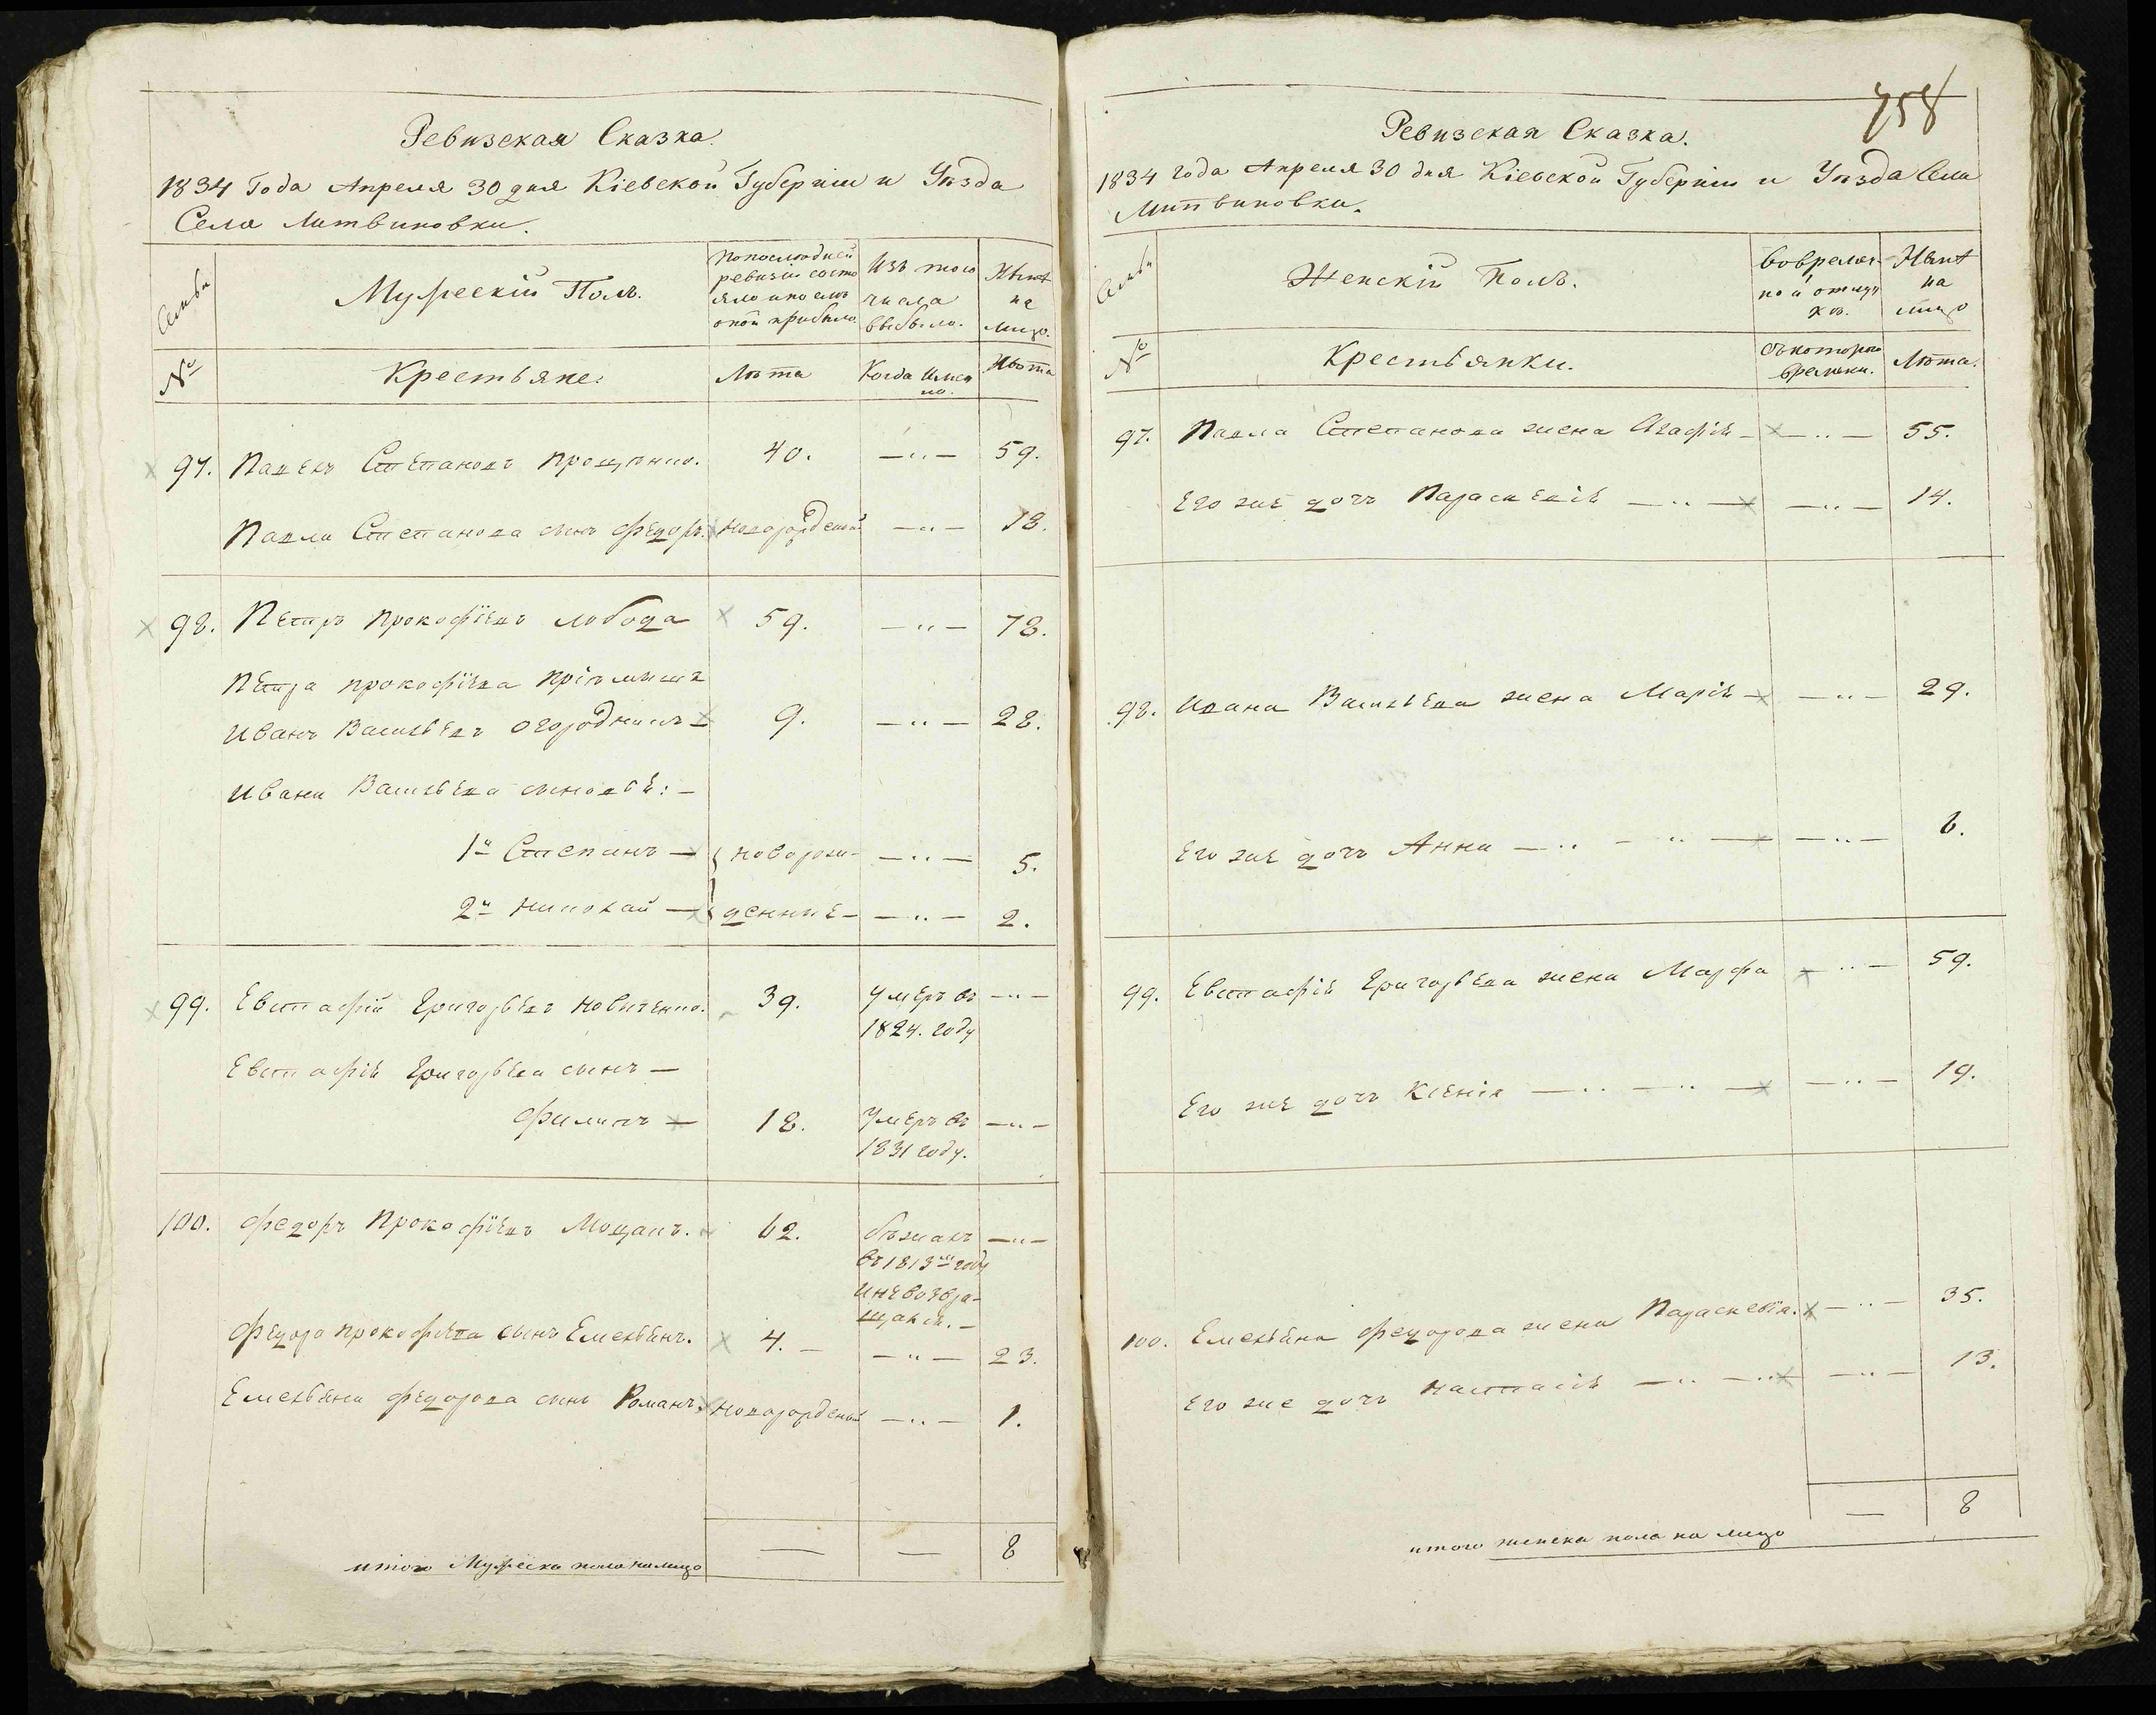 Ревизская Сказка.
1834 Года Апреля 30 дня Кіевской Губерніи и Уѣзда
Села Литвиновки.
Семьи
Мужескій Полъ.
По последней
ревизіи состо
яло и после
оной прибыло.
Изъ того
числа
выбыло.
Нынѣ
на
лицо.
№
Крестьяне.
Лѣта
Когда Имен
но.
Лѣта
97. Павелъ Степановъ Проценко. 40. —"— 59.
Павла Степанова сынъ Федоръ. новорожденый —"— 18.
98. Петръ Прокофіевъ Лобода 59. —"— 78.
Петра Прокофіева Пріемышъ
Иванъ Васильевъ Огородникъ — 9. —"— 28.
Ивана Васильева сыновья: —
1й Степанъ — новорож- —"— 5.
2й Николай — денные —"— 2.
99. Евстафій Григорьевъ Новиченко. 39. Умеръ въ —"—
1824. году
Евстафія Григорьева сынъ —
Филипъ — 18. Умеръ въ —"—
1831 году.
100. Федоръ Прокофіевъ Моцакъ. 62. бѣжалъ —"—
въ 1813м году
и не возвра-
щался. —
Федора Прокофьева сынъ Емельянъ. 4. — —"— 23.
Емельяна Федорова сынъ Романъ. новорожденый —"— 1.
— — 8
итого Мужеска пола на лицо
758
Ревизская Сказка.
1834 года Апреля 30 дня Кіевской Губерніи и Уѣзда Села
Литвиновки.
Семьи
Женскій Полъ.
Во времен-
ной отлуч
кѣ.
Нынѣ
на
лицо
№
Крестьянки.
Съ котораго
времени.
Лѣта.
97. Павла Степанова жена Агафія — —"— 55.
Его же дочь Параскевія —"— —"— 14.
98. Ивана Васильева жена Марія — —"— 29.
Его же дочь Анна —"— " — —"— 6.
99. Евстафія Григорьева жена Марфа —"— 59.
Его же дочь Ксенія —"— " — —"— 19.
100. Емельяна Федорова жена Параскевія. —"— 35.
Его же дочь Настасія —"— " — —"— 13.
— 8
итого женска пола на лицо